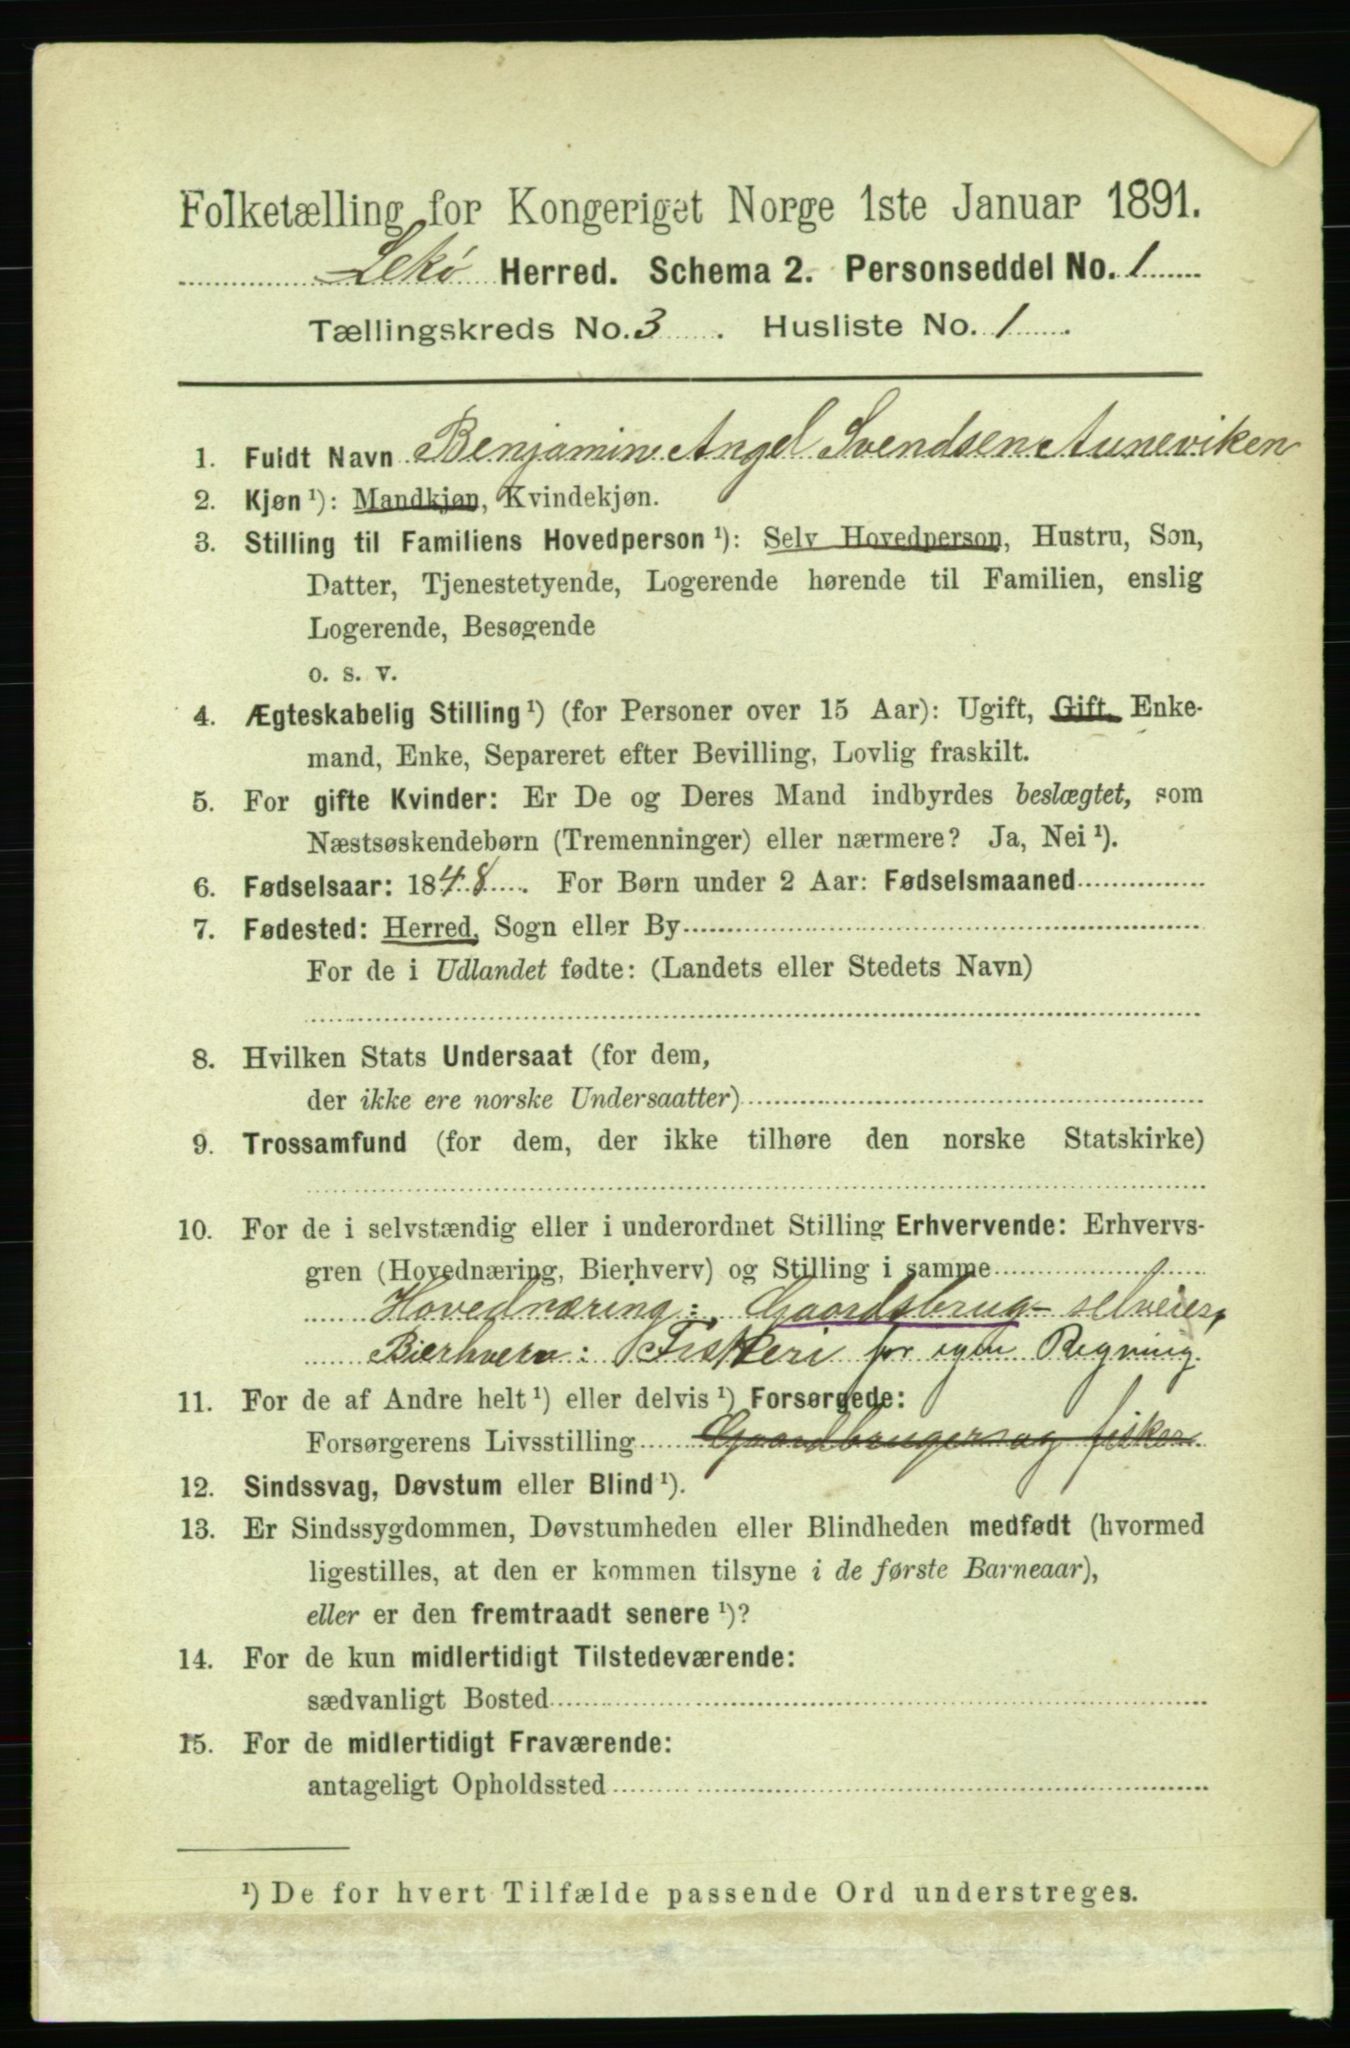 Folketælling for Kongeriget Norge 1ste Januar 1891.
Lekø Herred. Schema 2. Personseddel No. 1
Tællingskreds No. 3. Husliste No. 1.
1. Fuldt Navn Benjamin Angel Svendsen Auneviken
2. Kjøn ¹): Mandkjøn, Kvindekjøn.
3. Stilling til Familiens Hovedperson ¹): Selv Hovedperson, Hustru, Søn,
Datter, Tjenestetyende, Logerende hørende til Familien, enslig
Logerende, Besøgende
o. s. v.
4. Ægteskabelig Stilling ¹) (for Personer over 15 Aar): Ugift, Gift, Enke-
mand, Enke, Separeret efter Bevilling, Lovlig fraskilt.
5. For gifte Kvinder: Er De og Deres Mand indbyrdes beslægtet, som
Næstsøskendebørn (Tremenninger) eller nærmere? Ja, Nei ¹).
6. Fødselsaar: 1848. For Børn under 2 Aar: Fødselsmaaned
7. Fødested: Herred, Sogn eller By
For de i Udlandet fødte: (Landets eller Stedets Navn)
8. Hvilken Stats Undersaat (for dem,
der ikke ere norske Undersaatter)
9. Trossamfund (for dem, der ikke tilhøre den norske Statskirke)
10. For de i selvstændig eller i underordnet Stilling Erhvervende: Erhvervs-
gren (Hovednæring, Bierhverv) og Stilling i samme
Hovednæring: Gaardsbrug - selveier,
Bierhverv: Fiskeri for egen Regning.
11. For de af Andre helt ¹) eller delvis ¹) Forsørgede:
Forsørgerens Livsstilling Gaardbruger og fisker.
12. Sindssvag, Døvstum eller Blind ¹).
13. Er Sindssygdommen, Døvstumheden eller Blindheden medfødt (hvormed
ligestilles, at den er kommen tilsyne i de første Barneaar),
eller er den fremtraadt senere ¹)?
14. For de kun midlertidigt Tilstedeværende:
sædvanligt Bosted
15. For de midlertidigt Fraværende:
antageligt Opholdssted
¹) De for hvert Tilfælde passende Ord understreges.